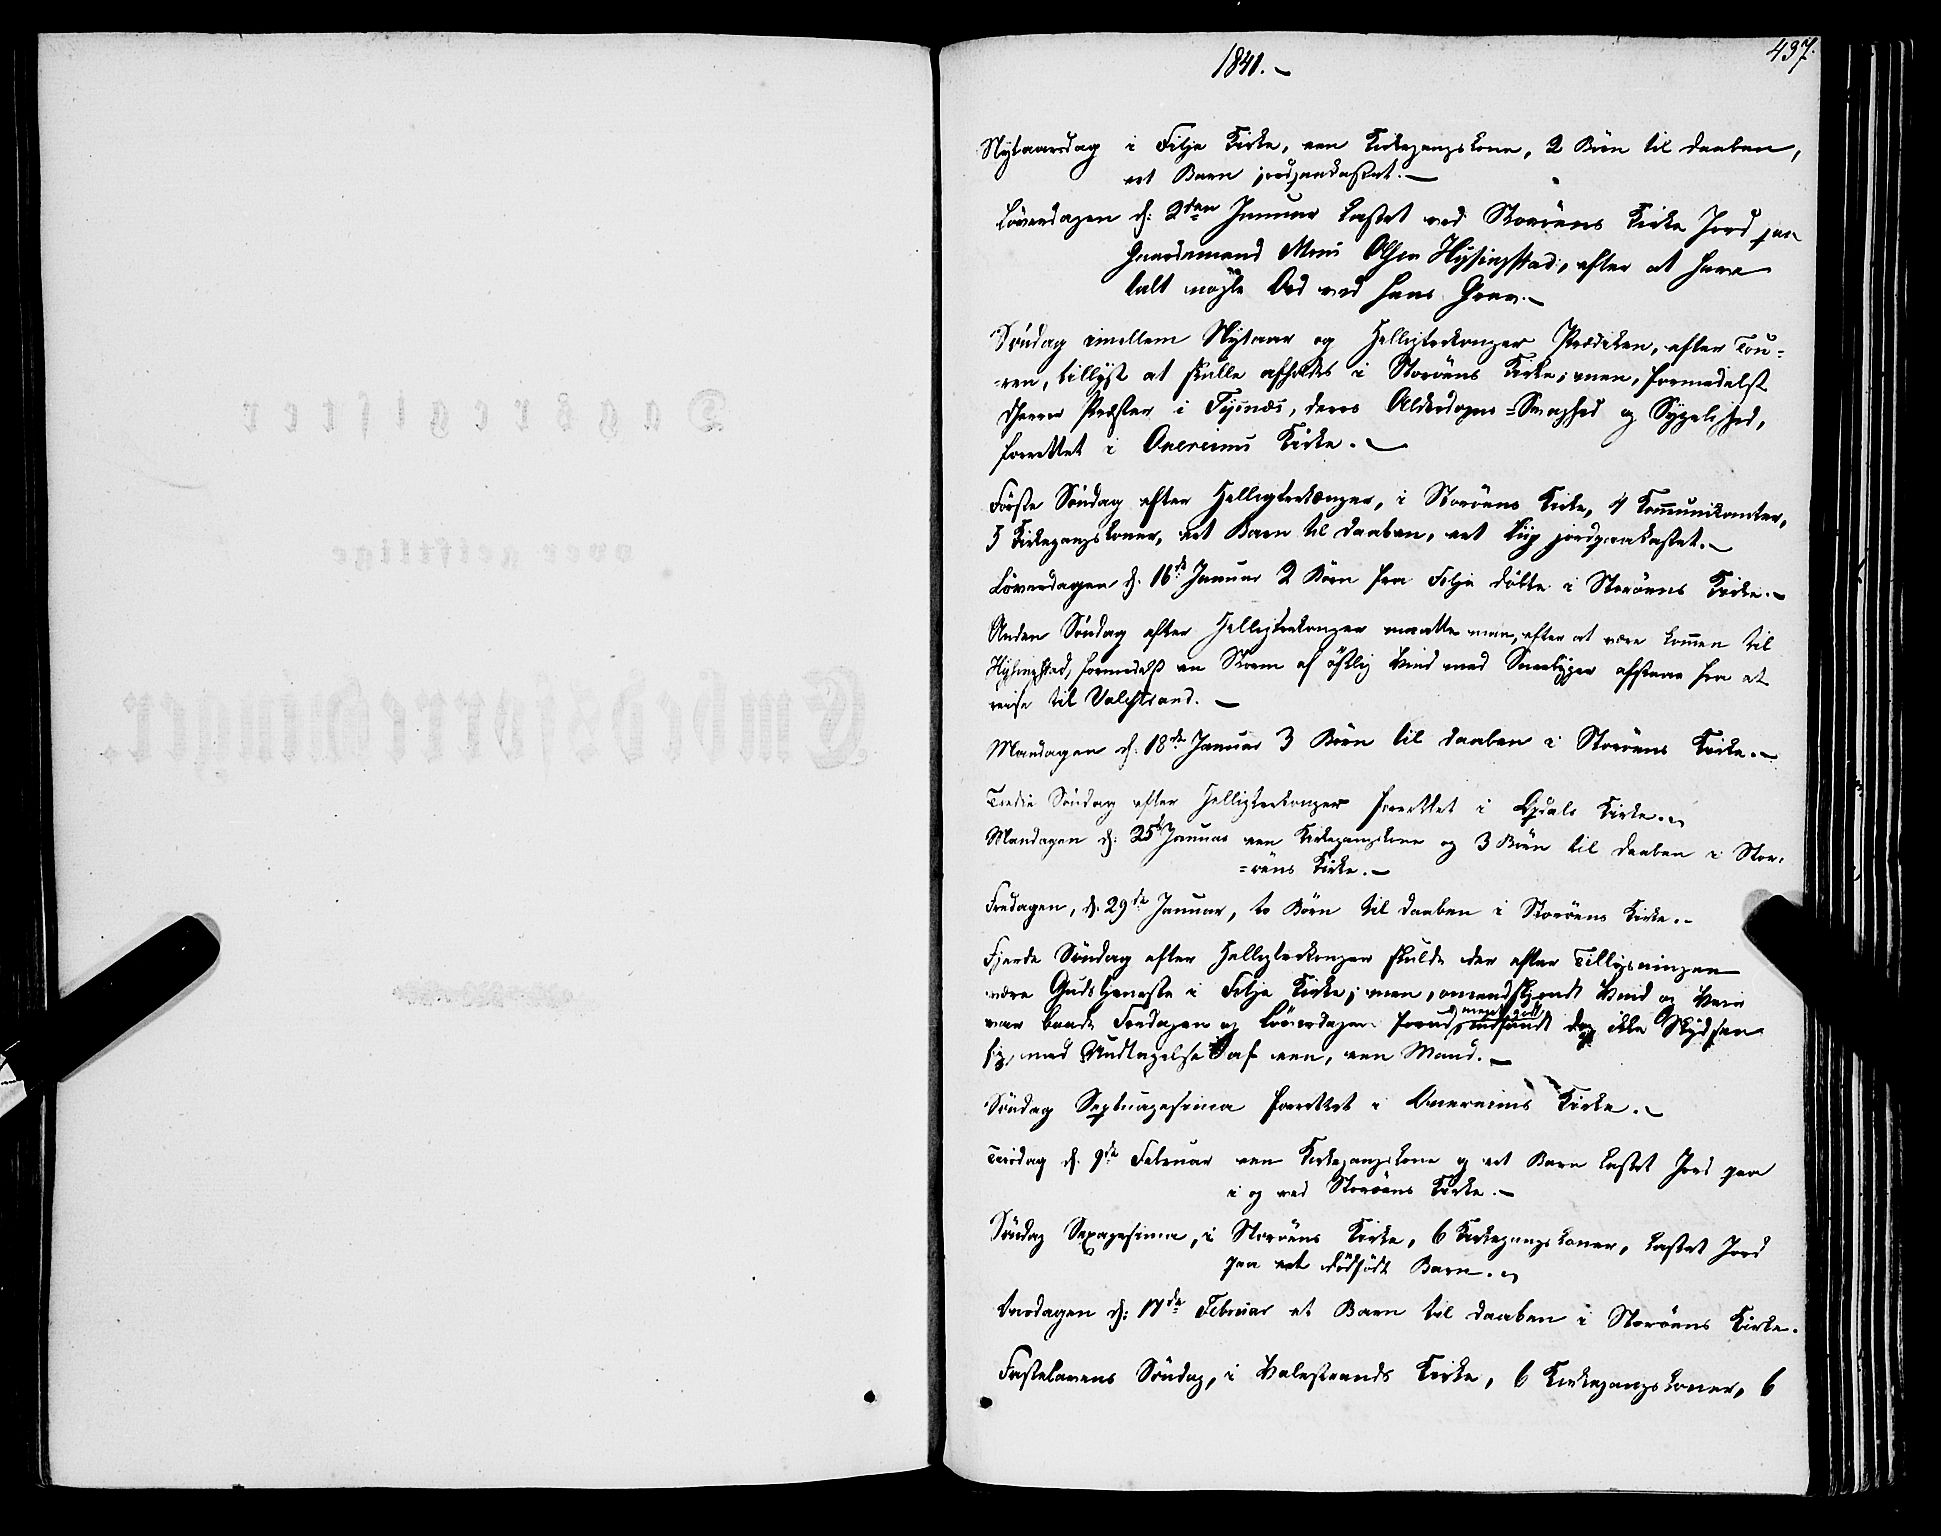 Dagsregister
over geistlige
Embedsforretninger.
437.
1841.-
Nytaarsdag i Fitje Kirke, een Kirkegangskone, 2 Börn til Daaben,
eet Barn jordpaakastet.-
Löverdagen d: 2den Januar kastet ved Storöens Kirke Jord paa
Gaardemand Mons Olsen Hysingstad, efter at have
talt nogle Ord ved hans Grav.-
Söndag imellem Nytaar og Helligtrekonger Prædiken, efter Tou-
-ren, tillyst at skulle afholdes i Storöens Kirke; men, formedelst
Præster i Tysnæs, deres Alderdoms-Svaghed og Sygelighed,
forrettet i Onereims Kirke.-
Förste Söndag efter Helligtrekonger, i Storöens Kirke, 4 Communicanter,
5 Kirkegangskoner, eet Barn til Daaben, eet Liig jordpaakastet.-
Löverdagen d. 16de Januar 2 Börn fra Fitje döbte i Storöens Kirke.-
Anden Söndag efter Helligtrekonger maatte man, efter at være kommen til
Hysingstad, formedelst en Storm af östlig Vind med Sneebyger afstaae fra at
reise til Valestrand.-
Mandagen d: 18de Januar 3 Börn til Daaben i Storöens Kirke.-
Tredie Söndag efter Helligtrekonger forrettet i Opdals Kirke.-
Mandagen d: 25de Januar een Kirkegangskone og 3 Börn til Daaben i Stor-
-öens Kirke.-
Fredagen, d. 29de Januar, to Börn til Daaben i Storöens Kirke.-
Fjerde Söndag efter Helligtrekonger skulde der efter Tillysningen
være Gudstjeneste i Fitje Kirke; men, omendskjöndt Vind og Veir
var baade Fredagen og Löverdagen forud, meget godt indfandt dog ikke Skydsen
sig, med Undtagelse af een, een Mand.-
Söndag Septuagesima forrettet i Onereims Kirke.-
Tirsdag d. 9de Februar een Kirkegangskone og eet Barn kastet Jord paa
i og ved Storöens Kirke.-
Söndag Sexagesima, i Storöens Kirke, 6 Kirkegangskoner, kastet Jord
paa eet dödfödt Barn.-
Onsdagen d: 17de Februar et Barn til Daaben i Storöens Kirke.
Fastelavens Söndag, i Valestrands Kirke, 6 Kirkegangskoner, 6